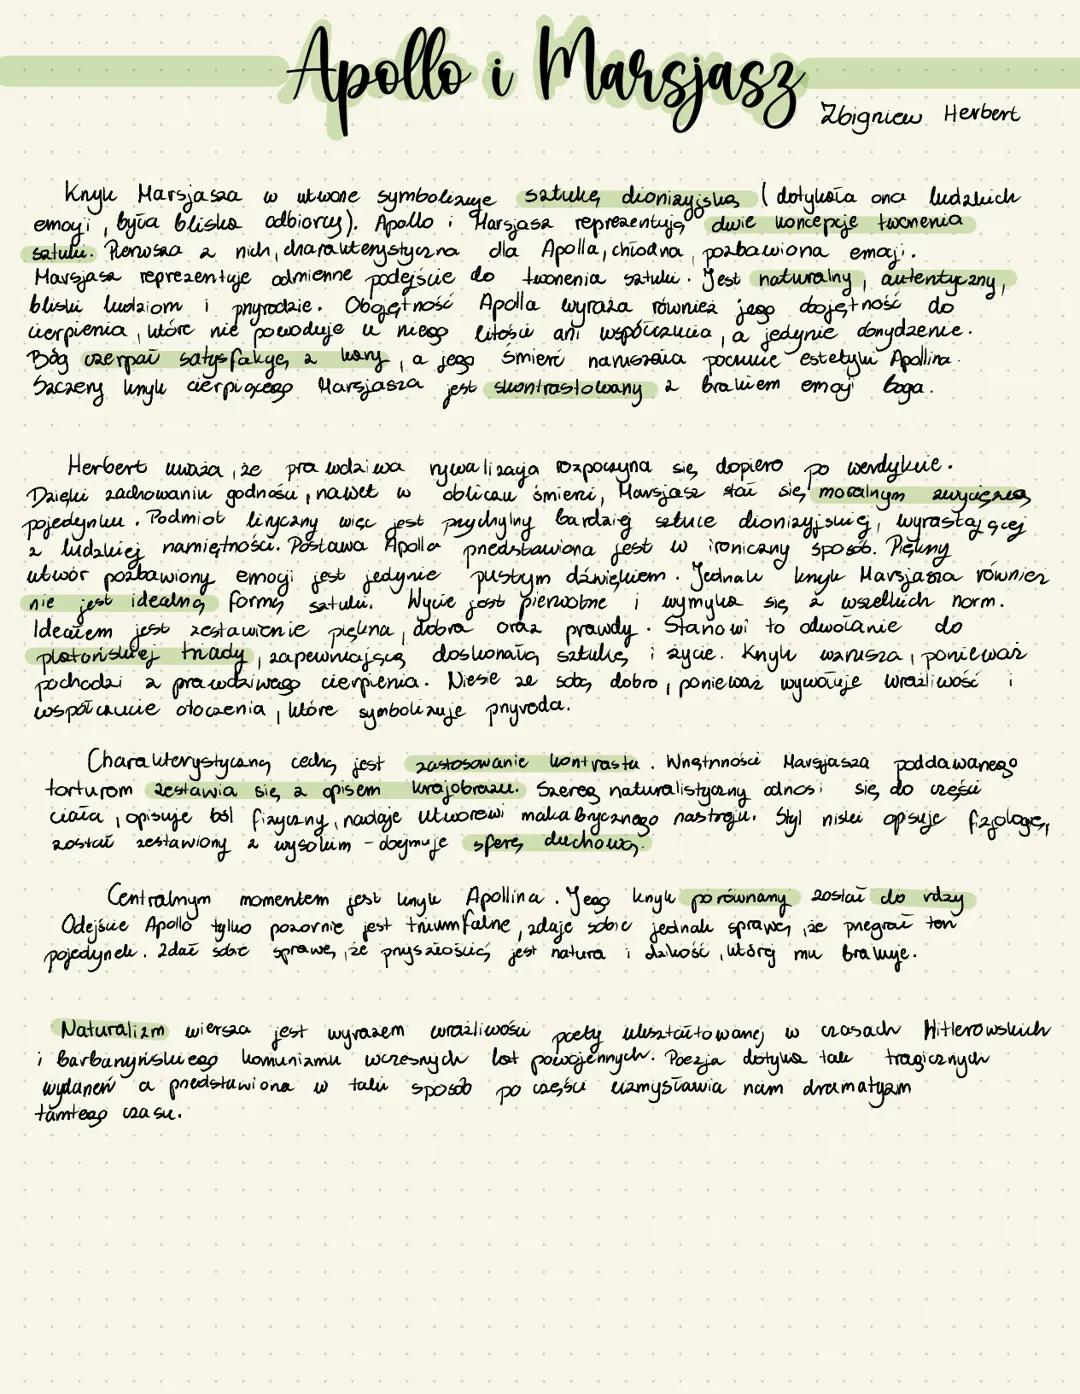 Apollo i Marsjasz
Zbigniew Herbert
Krzyk Marsjasza w utworze symbolizuje sztukę dionizyjską (dotykała ona ludzkich
emocji, była blisko odbiorcy). Apollo i Marsjasz reprezentują dwie koncepcje tworzenia
sztuki. Pierwsza z nich, charakterystyczna dla Apolla, chłodna, pozbawiona emocji.
Marsjasz reprezentuje odmienne podejście do tworzenia sztuki. Jest naturalny, autentyczny,
bliski ludziom i przyrodzie. Obojętność Apolla wyraża również jego obojętność do
cierpienia, które nie powoduje u niego litości ani współczucia, a jedynie obrzydzenie.
Bóg czerpał satysfakcję z kary, a jego śmierć naruszała poczucie estetyki Apollina.
Szczery krzyk cierpiącego Marsjasza jest skontrastowany z brakiem emocji boga.
Herbert uważa, że prawdziwa rywalizacja rozpoczyna się dopiero po werdykcie.
Dzięki zachowaniu godności, nawet w obliczu śmierci, Marsjasz stał się moralnym zwycięzcą
pojedynku. Podmiot liryczny więc jest przychylny bardziej sztuce dionizyjskiej, wyrastającej
z ludzkiej namiętności. Postawa Apolla przedstawiona jest w ironiczny sposób. Piękny
utwór pozbawiony emocji jest jedynie pustym dźwiękiem. Jednak krzyk Marsjasza również
nie jest idealną formą sztuki. Wycie jest pierwotne i wymyka się z wszelkich norm.
Ideałem jest zestawienie piękna, dobra oraz prawdy. Stanowi to odwołanie do
platońskiej triady, zapewniającą doskonałą sztukę i życie. Krzyk wzrusza, ponieważ
pochodzi z prawdziwego cierpienia. Niesie ze sobą dobro, ponieważ wywołuje wrażliwość i
współczucie otoczenia, które symbolizuje przyroda.
Charakterystyczną cechą jest zastosowanie kontrastu. Wnętrzności Marsjasza poddawanego
torturom zestawia się z opisem krajobrazu. Szereg naturalistyczny odnosi się do części
ciała, opisuje ból fizyczny, nadaje utworowi makabrycznego nastroju. Styl niski opisuje fizjologię,
został zestawiony z wysokim - obejmuje sferę duchową.
Centralnym momentem jest krzyk Apollina. Jego krzyk porównany został do rdzy
Odejście Apollo tylko pozornie jest triumfalne, zdaje sobie jednak sprawę, że przegrał ten
pojedynek. Zdał sobie sprawę, że przyszłością jest natura i dzikość, której mu brakuje.
Naturalizm wiersza jest wyrazem wrażliwości poety ukształtowanej w czasach Hitlerowskich
i barbarzyńskiego komunizmu wczesnych lat powojennych. Poezja dotyka tak tragicznych
wydarzeń a przedstawiona w taki sposób po części uzmysławia nam dramatyzm
tamtego czasu.